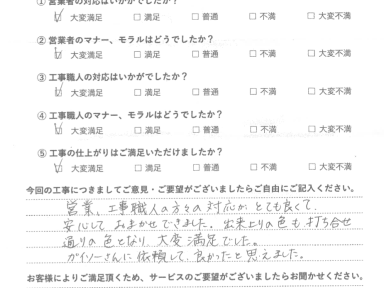 ① 営業者の対応はいかがでしたか？
☑ 大変満足 □ 満足 □ 普通 □ 不満 □ 大変不満
② 営業者のマナー、モラルはどうでしたか？
☑ 大変満足 □ 満足 □ 普通 □ 不満 □ 大変不満
③ 工事職人の対応はいかがでしたか？
☑ 大変満足 □ 満足 □ 普通 □ 不満 □ 大変不満
④ 工事職人のマナー、モラルはどうでしたか？
☑ 大変満足 □ 満足 □ 普通 □ 不満 □ 大変不満
⑤ 工事の仕上がりはご満足いただけましたか？
☑ 大変満足 □ 満足 □ 普通 □ 不満 □ 大変不満
今回の工事につきましてご意見・ご要望がございましたらご自由にご記入ください。
営業、工事職人の方々の対応が、とても良くて、
安心しておまかせできました。出来上りの色も打ち合せ
通りの色となり、大変満足でした。
ガイソーさんに依頼して、良かったと思えました。
お客様によりご満足頂くため、サービスのご要望がございましたらお聞かせください。